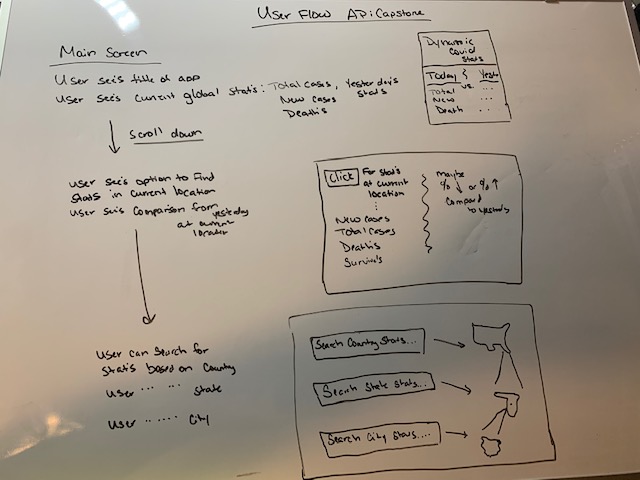 User Flow API: Capstone
Main Screen
User see's title of app
User see's current global stats: Total cases, Yesterday's
New cases stats
Death's
Dynamic
Covid
stats
Today & Yest
Total vs ...
New ...
Death ...
↓ Scroll down
User see's option to find
stats in current location
User see's comparison from
yesterday
at current
location
Click For stat's
at current
location
New cases
Total cases
Death's
Survivals
maybe
% ↓ or % ↑
compared
to yesterday
User can search for
stat's based on country
User ... ... state
User ...... City
Search Country stats...
Search State stats...
Search City stats....